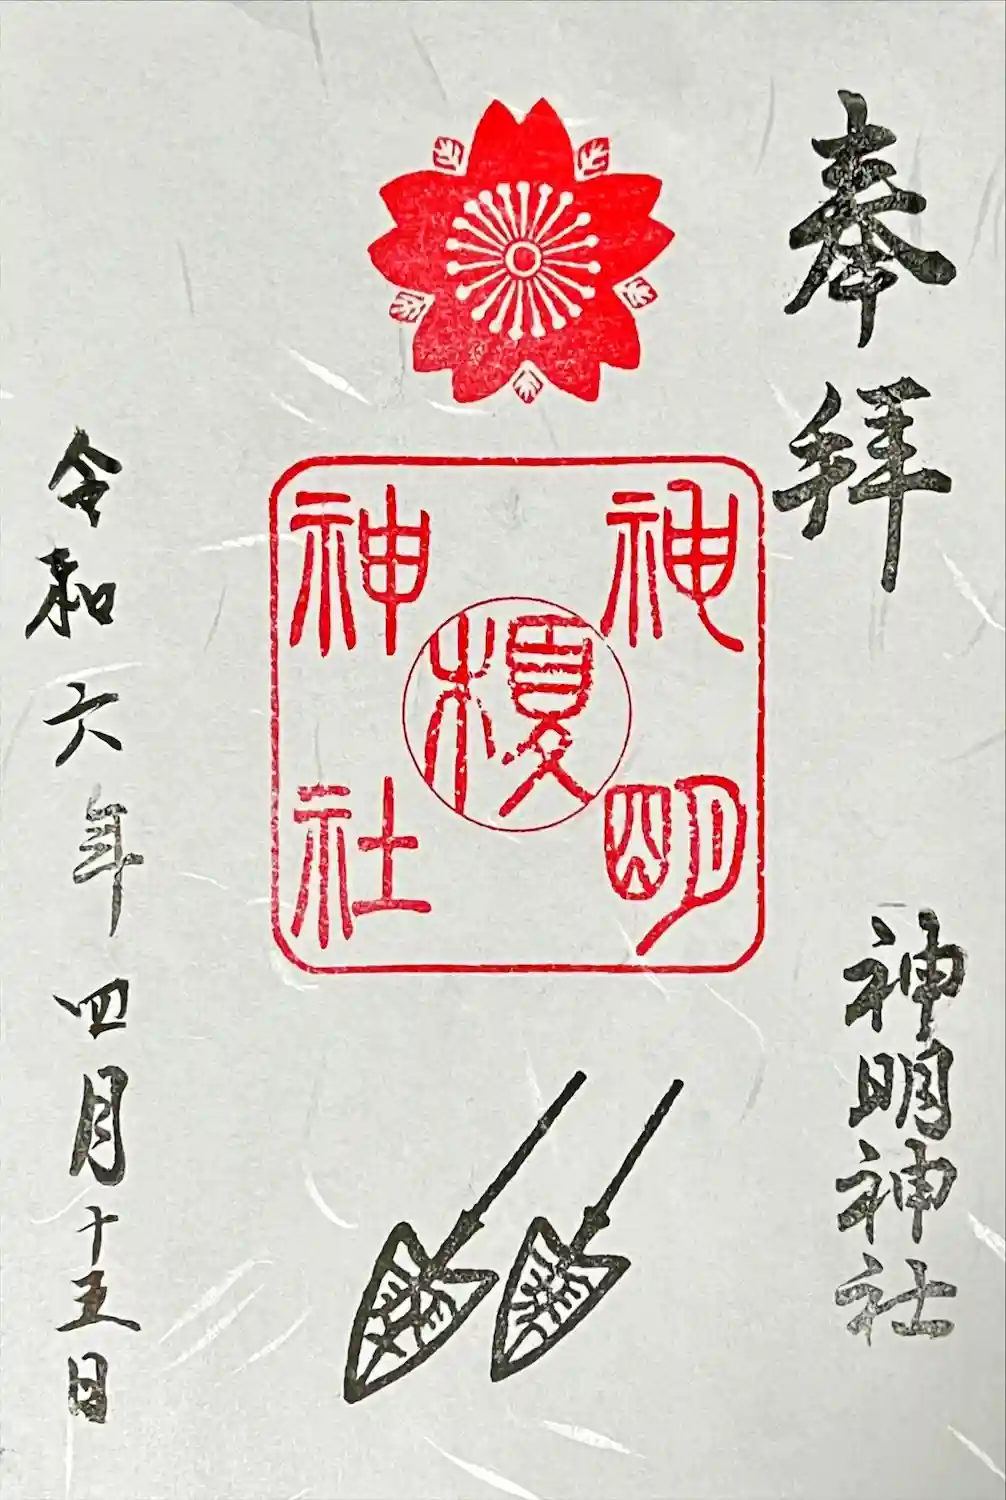 奉拝
神明神社
神明
榎
神社
令和六年四月十五日